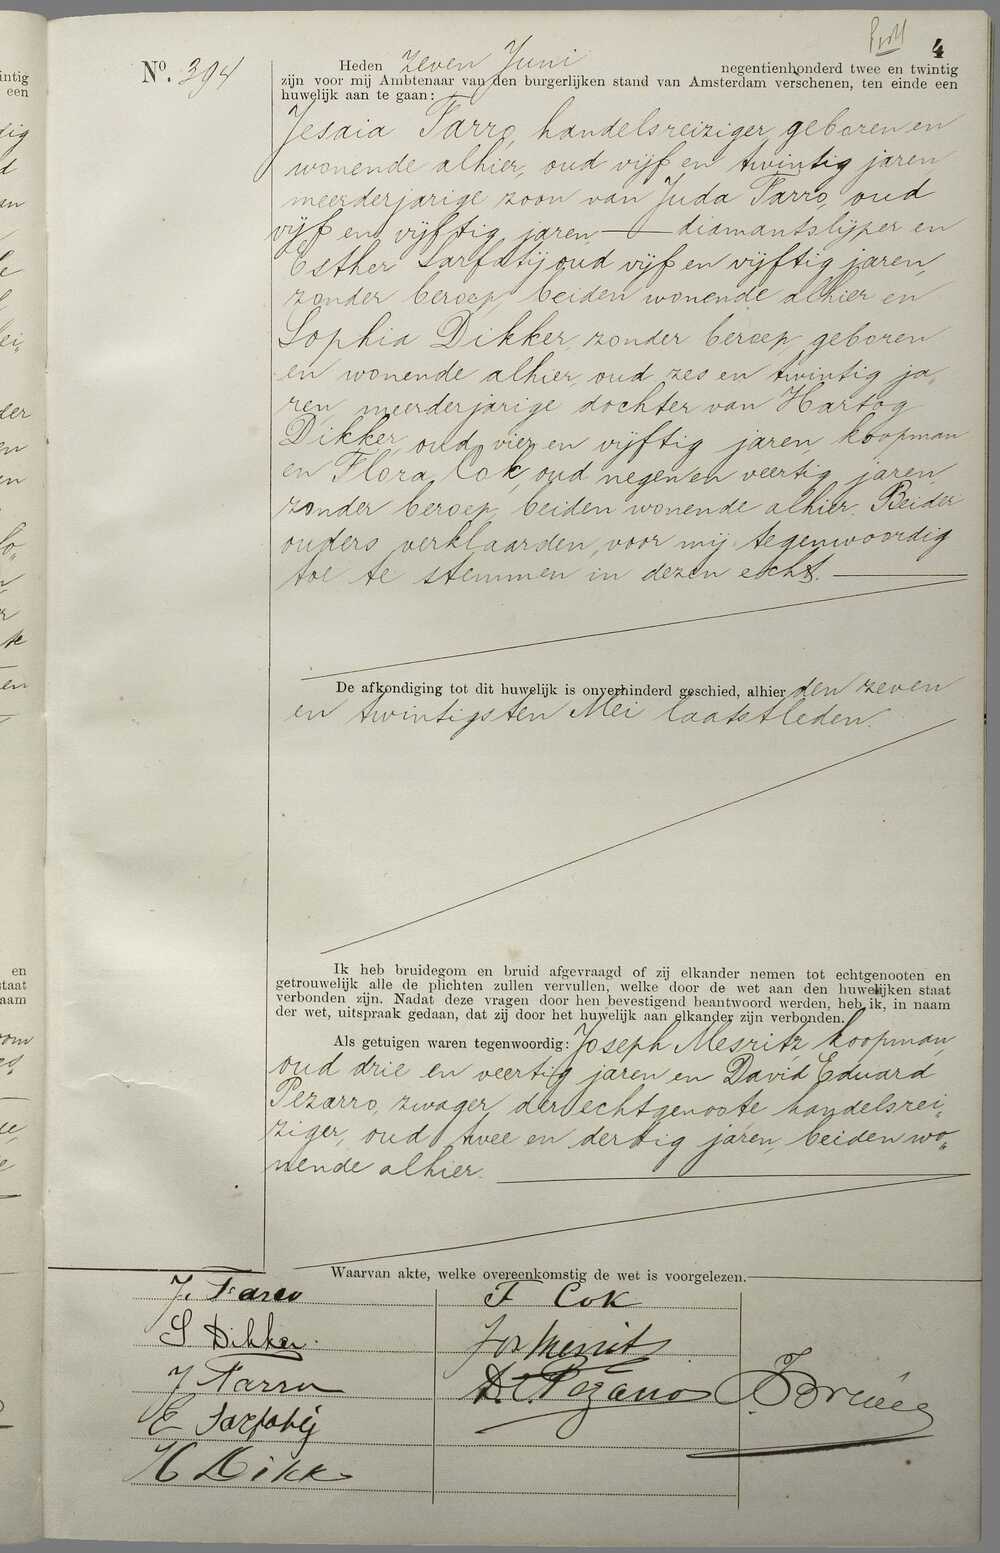 4
Nº. 394
Heden zeven Juni negentienhonderd twee en twintig
zijn voor mij Ambtenaar van den burgerlijken stand van Amsterdam verschenen, ten einde een
huwelijk aan te gaan:
Jesaia Farro, handelsreiziger, geboren en
wonende alhier, oud vijf en twintig jaren,
meerderjarige zoon van Juda Farro, oud
vijf en vijftig jaren — diamantslijper en
Esther Sarfatij oud vijf en vijftig jaren,
zonder beroep, beiden wonende alhier en
Sophia Dikker, zonder beroep, geboren
en wonende alhier, oud zes en twintig ja-
ren, meerderjarige dochter van Hartog
Dikker, oud vier en vijftig jaren, koopman
en Flora Cok, oud negen en veertig jaren,
zonder beroep, beiden wonende alhier. Beider
ouders verklaarden, voor mij tegenwoordig
toe te stemmen in dezen echt.
De afkondiging tot dit huwelijk is onverhinderd geschied, alhier den zeven
en twintigsten Mei laatstleden.
Ik heb bruidegom en bruid afgevraagd of zij elkander nemen tot echtgenooten en
getrouwelijk alle de plichten zullen vervullen, welke door de wet aan den huwelijken staat
verbonden zijn. Nadat deze vragen door hen bevestigend beantwoord werden, heb ik, in naam
der wet, uitspraak gedaan, dat zij door het huwelijk aan elkander zijn verbonden.
Als getuigen waren tegenwoordig: Joseph Mesritz, koopman,
oud drie en veertig jaren en David Eduard
Pezarro, zwager der echtgenoote handelsrei-
ziger, oud twee en dertig jaren, beiden wo-
nende alhier.
Waarvan akte, welke overeenkomstig de wet is voorgelezen.
J. Farro
S Dikker
J Farro
E Sarfatij
H Dikk
F Cok
Jos Mesritz
D. E. Pezarro